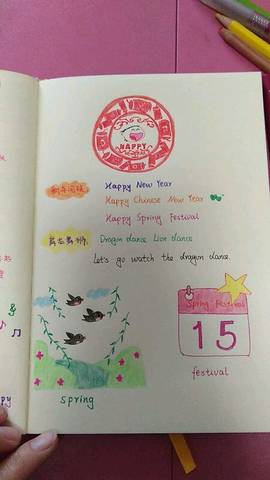 HAPPY
新年问候
Happy New Year
Happy Chinese New Year
Happy Spring Festival
Dragon dance Lion dance
Let's go watch the dragon dance.
Spring Festival
15
festival
spring